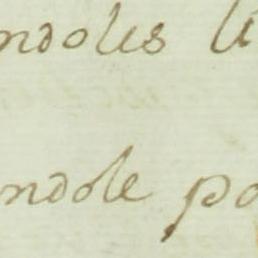 ndoles li
ndole po